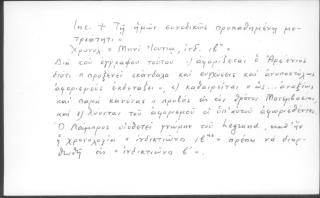 Inc. + Τῇ ἡμῶν συνοδικῶς προκαθημένῃ με-
τριότητι »
Χρονολ « Μηνὶ Ἰουνίῳ, ἰνδ. ιβ ης »
Διὰ τοῦ ἐγγράφου τούτου 1) ἀφορίζεται ὁ Ἀρσένιος
διότι « προξενεῖ σκάνδαλα καὶ συγχύσεις καὶ ἀνυποστάτους
ἀφορισμοὺς ἐκθέσθαι », 2) καθαιρεῖται « ὡς ... ἀναξίως
καὶ παρὰ κανόνας » προβὰς εἰς τὸν θρόνον Μονεμβασίας,
καὶ 3) λύονται τοῦ ἀφορισμοῦ οἱ ὑπ' αὐτοῦ ἀφορισθέντες.
Ὁ Λάμπρος υἱοθετεῖ γνώμην τοῦ Legrand, καθ' ἣν
ἡ χρονολογία « ἰνδικτιῶνος ιβ ης » πρέπει νὰ διορ-
θωθῇ εἰς « ἰνδικτιῶνος β' ».